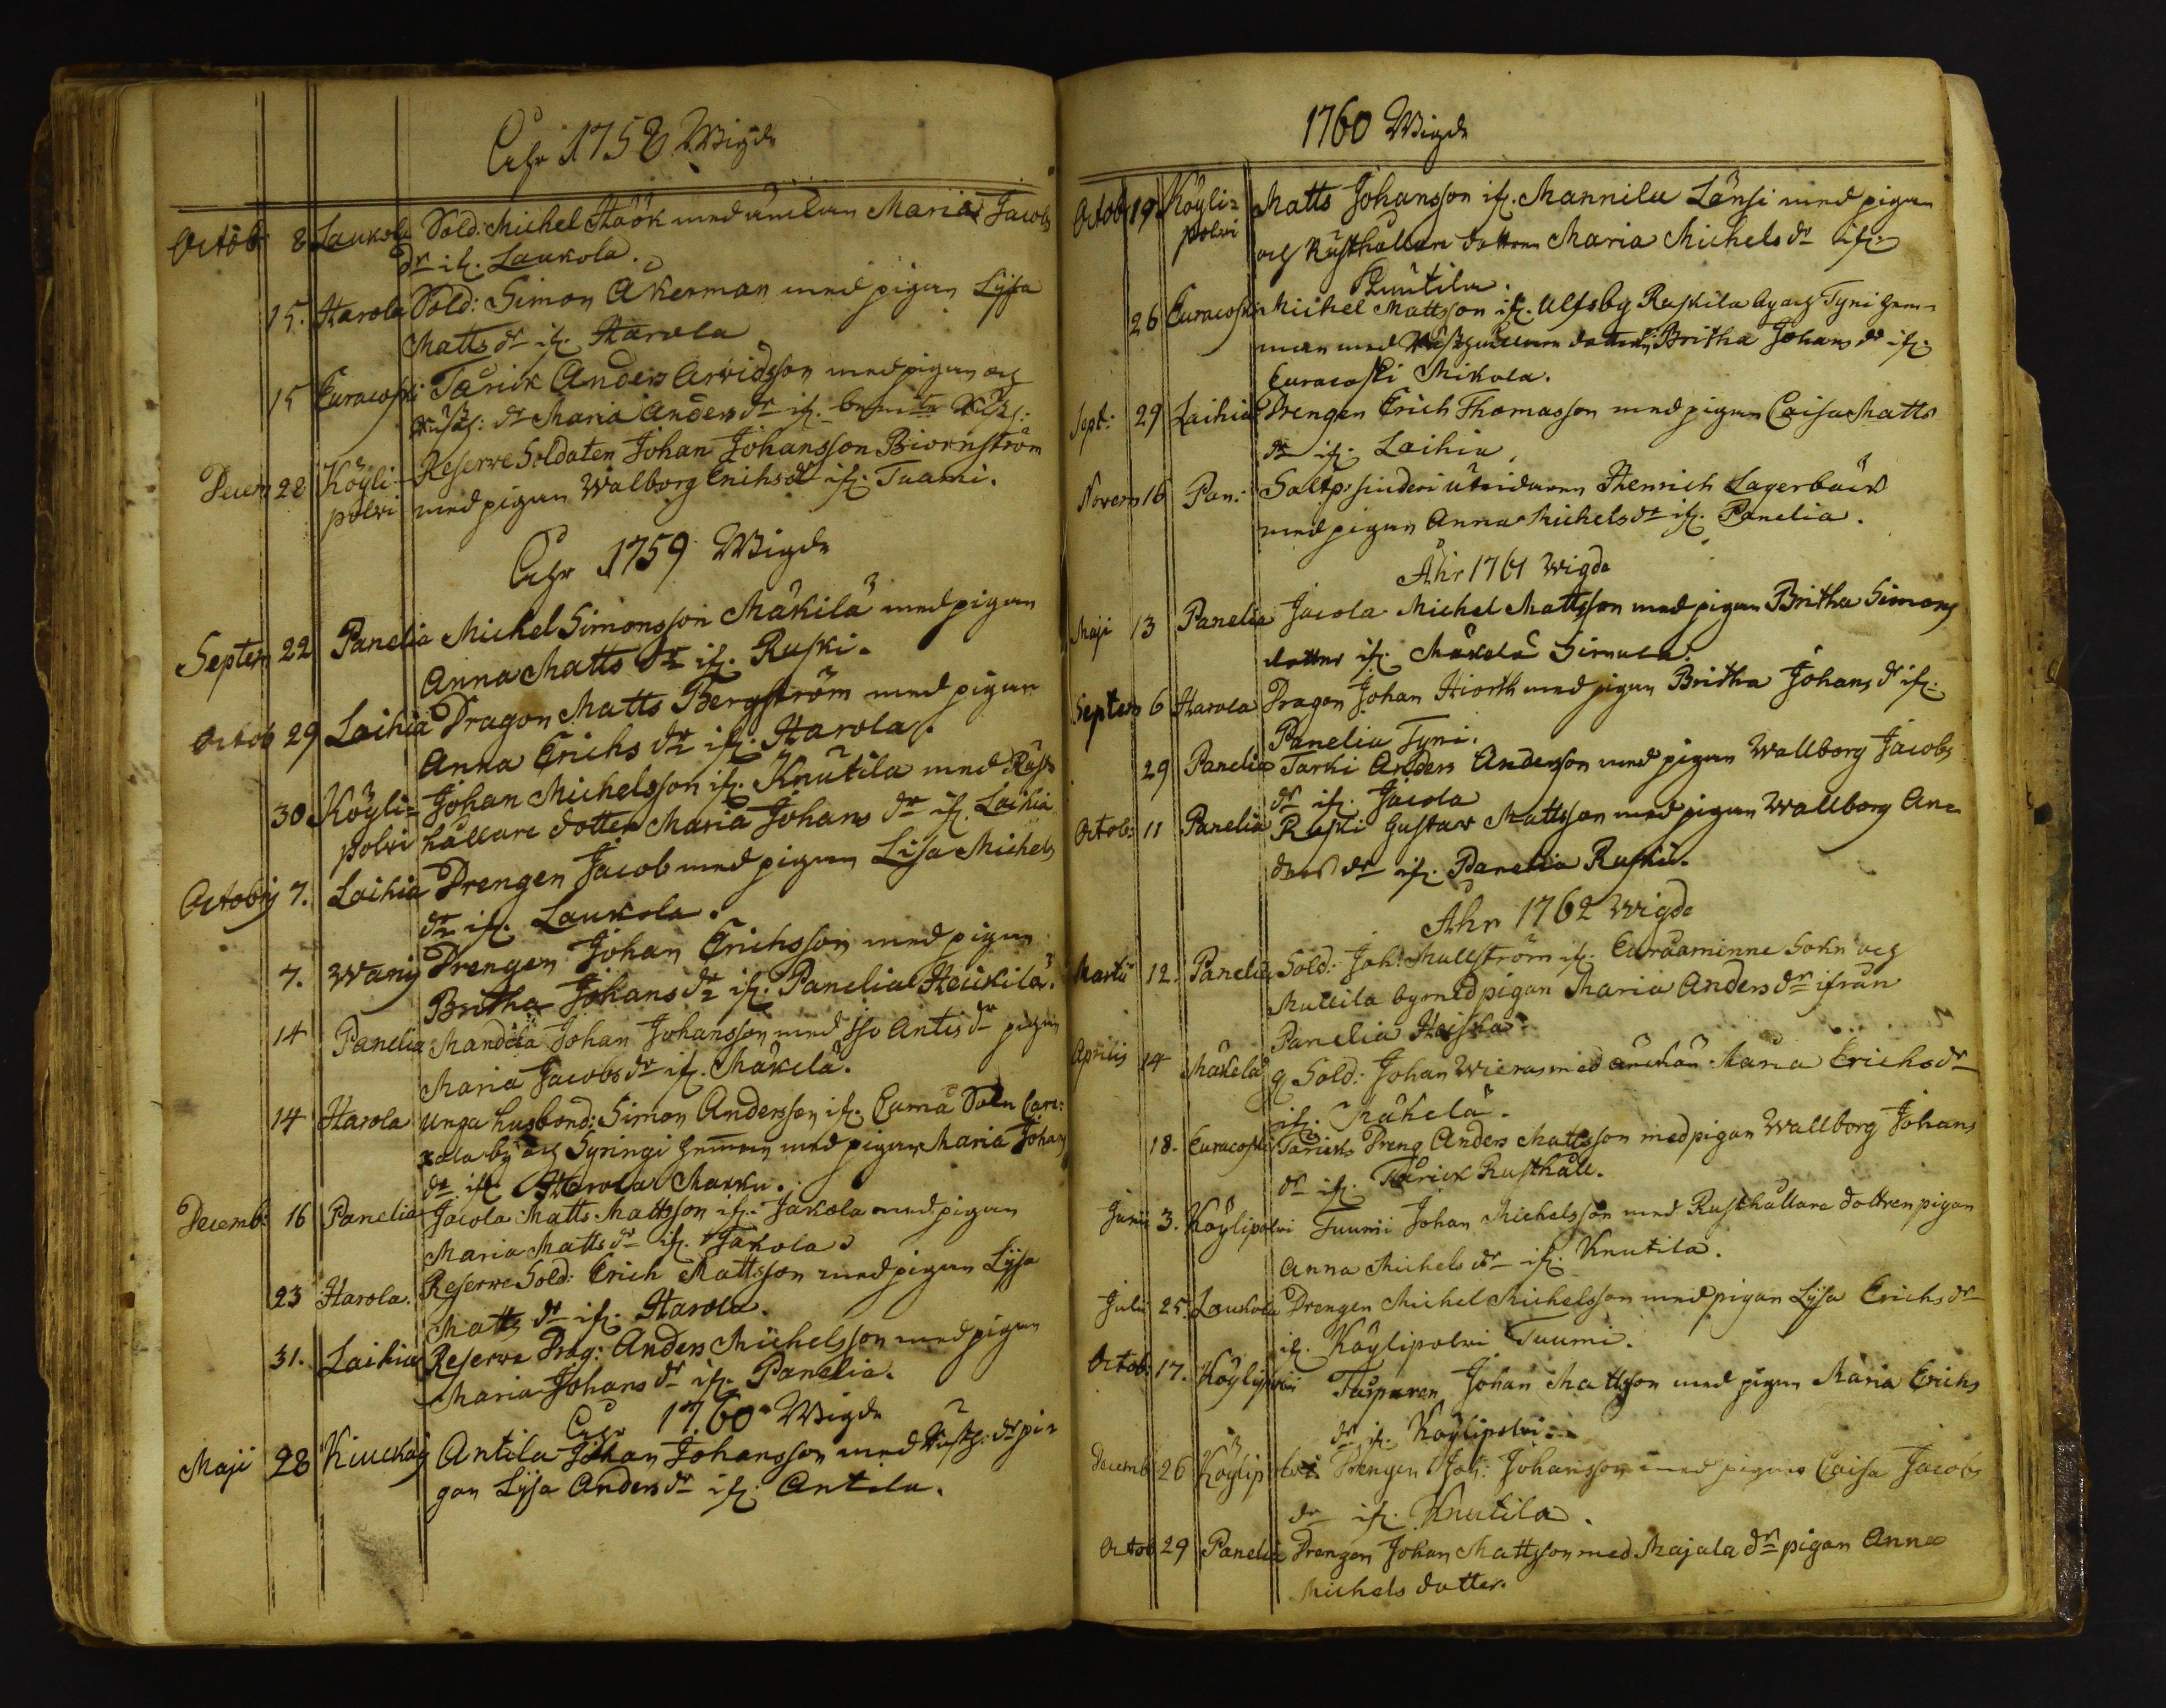 Åhr 1758 Wigde
Octob: 8 Laukola Sold: Michel Höök med änckan Maria Jacobs
dr ifr. Laukola.
15. Harola Sold: Simon Åkerman med pigan Lysa
Matts dr ifr. Harola
15 Euracoski Tarick Anders Arvidsson med pigan og
Rusth: dr Maria Anders dr ifr.
Decem 28 Köyli- Reserve Soldaten Johan Johansson Biornström
polvi med pigan Walborg Erichs dr ifr. Tuomi.
Åhr 1759 Wigde
Septem 22 Panelia Michel Simonsson Mäkilä med pigan
Anna Matts dr ifr. Ruski.
Octob 29 Laihia Dragon Matts Bergström med pigan
Anna Erichs dr ifr. Harola.
30 Köyli- Johan Michelsson ifr. Knutila med Rust-
polvi hållare dotter Maria Johans dr ifr. Laihia
Octobrij 7. Laihia Drengen Jacob med pigan Lisa Michels
dr ifr. Laukola.
7. Wanij Drengen Johan Erichsson med pigan
Britha Johans dr ifr. Panelia Heickilä.
14 Panelia Mandila Johan Johansson med Iso Antis dr pigan
Maria Jacobs dr ifr. Mäkelä.
14 Harola Unga husbond: Simon Andersson ifr. Eura Sokn Care-
xela by och Syringi hemman med pigan Maria Johans
dr ifr. Harola Marku.
Decemb: 16 Panelia Jacola Matts Mattsson ifr. Jakola med pigan
Maria Matts dr ifr. Jakola
23 Harola. Reserve Sold: Erich Mattsson med pigan Lysa
Matts dr ifr. Harola.
31. Laihia Reserve Drag: Anders Michelsson med pigan
Maria Johans dr ifr. Panelia.
Åhr 1760 Wigde
Maji 28 Kiuckaj Antila Johan Johansson med Rusth: dr pi-
gan Lysa Anders dr ifr. Antila.
1760 Wigde
Octob 19 Köyli- Matts Johansson ifr. Mannila Länsi med pigan
polvi och Rusthållare dottren Maria Michels dr ifr.
Knutila.
26 Euracoski Michel Mattsson ifr. Ulfsby Ruskila by och Tyni hem-
man med Rusthållare dottren Britha Johans dr ifr.
Euracoski Mikola.
Sept: 29 Laihia Drengen Erich Thomasson med pigan Caisa Matts
dr ifr. Laihia
Novem 16 Pan: Saltp: sinderi Henrich Lagerbäck
med pigan Anna Michels dr ifr. Panelia.
Åhr 1761 wigde
Maji 13 Panelia Jacola Michel Mattsson med pigan Britha Simons
dotter ifr. Mäkelä Simula.
Septem 6 Harola Dragon Johan Hiorth med pigan Britha Johans dr ifr.
Panelia Tyni.
29 Panelia Tarki Anders Andersson med pigan Wallborg Jacobs
dr ifr. Jacola
Octob: 11 Panelia Ruski Gustav Mattsson med pigan Wallborg An-
ders dr ifr. Panelia Ruski.
Åhr 1762 wigde
Martii 12. Panelia Sold: Joh: Mullström ifr. Euraåminne Sokn och
Mullila by med pigan Maria Anders dr ifrån
Panelia Haiska.
Aprilis 14 Mäkelä g Sold: Johan Wieras med änckan Maria Erichs dr
ifr. Mäkelä.
18. Euracoski Taricks Dreng Anders Mattsson med pigan Wallborg Johans
dr ifr. Tarick Rusthåll.
Junii 3. Köylipolvi Tuumi Johan Michelsson med Rusthållare dottren pigan
Anna Michels dr ifr. Knutila.
Julii 25. Laukola Drengen Michel Michelsson med pigan Lysa Erichs dr
ifr. Köylipolvi Tuumi.
Octob: 17. Köylipolvi Johan Mattsson med pigan Maria Erichs
dr ifr. Köylipolvi.
Decemb 26 Köylipolvi Drengen Joh: Johansson med pigan Caisa Jacobs
dr ifr. Knutila.
Octob 29 Panelia Drengen Johan Mattsson med Majala dr pigan Anna
Michels dotter.